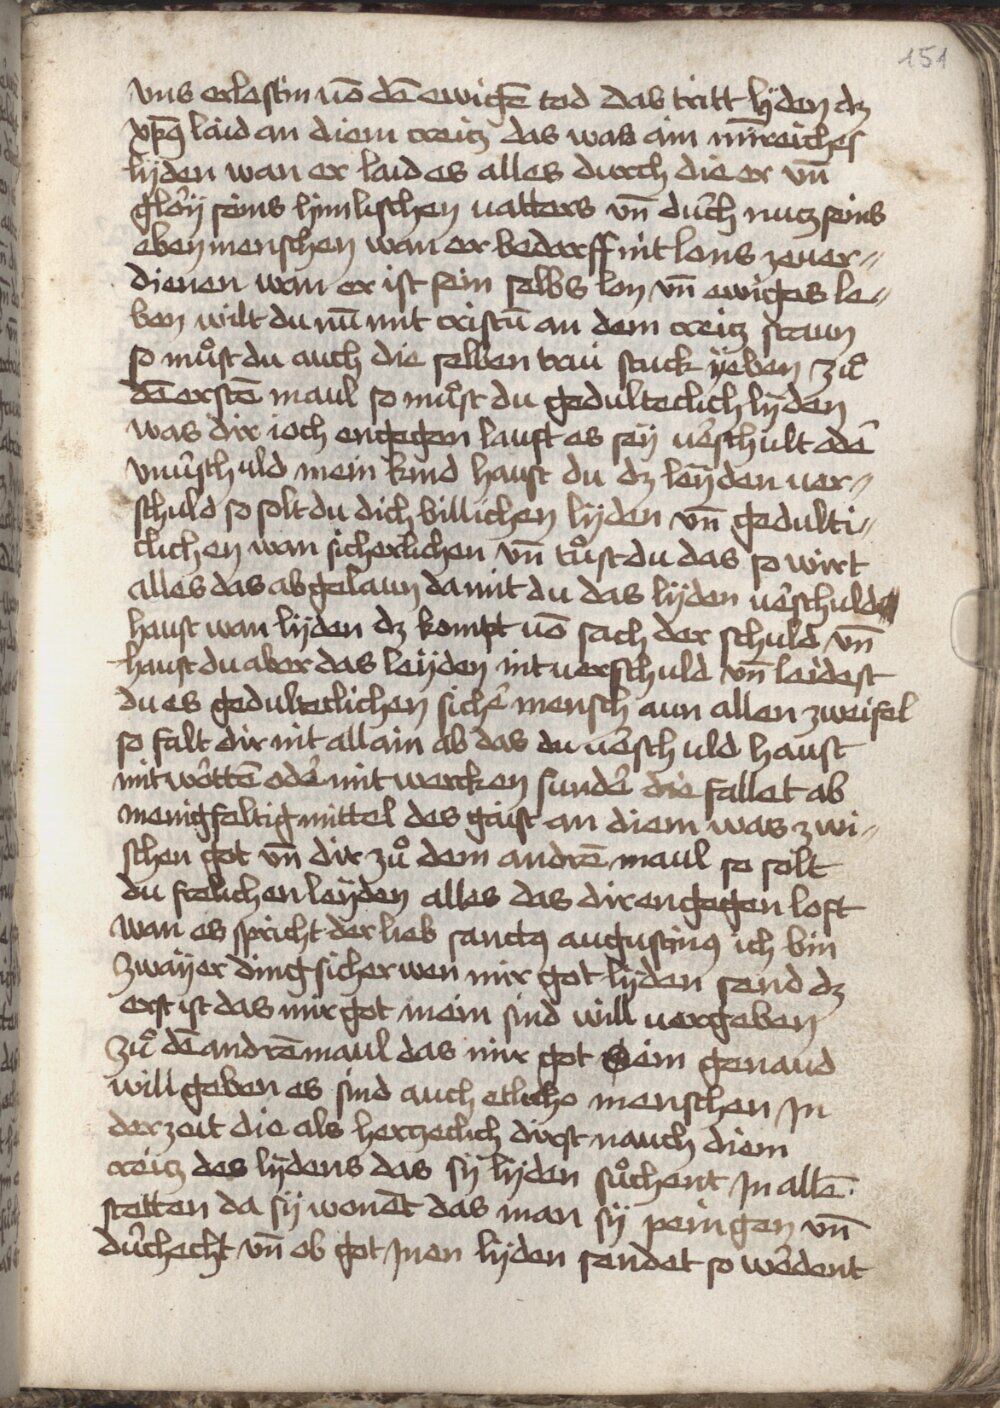 151
vns erlostin vō dē ewigē tod das tritt lÿden dz
xp̄s laid an diem creitz das was ain miñreiches
lÿden wan er laid es alles durch die er vn̄
glorÿ seins himlischen vatters vn̄ durch nutz seins
eben menschen wan er bedorff nit lons zeuer⸗
dienen wan er ist sein selbs lon vn̄ ewiges le⸗
ben wilt du nū mit cristū an dem creitz staun
so muͦst du auch die selben trui stuck ÿeben zuͦ
dē erstē maul so muͦst du gedulteclich lÿden
was dir ioch engegen lauft es seÿ v̓schult od̓
vnu̓schuld mein kind haust du dz leÿden uer⸗
schuld so solt du dich billichen lÿden vn̄ gedulti⸗
clichen wan sicherlichen vn̄ tuͦst du das so wirt
alles das abgelaun da mit du das lÿden u̓schuld
haust wan lÿden dz kompt vō sach der schuld vn̄
haust du aber das leÿden nit uerschuld vn̄ leidest
du es gedulteclichen sich̓ mensch aun allen zweifel
so falt dir nit allain ab das du u̓schuld haust
mit wo̓ttē od̓ mit wercken sund̓ die fallet ab
menigfeltig mittel des gaist an diem was zwi⸗
schen got vn̄ dir zuͦ dem andrē maul so solt
du frelichen leÿden alles das dir engegen loft
wan es spricht der lieb sanctꝰ augustinꝰ ich bin
zwaÿer ding sicher wen mir got lÿden send dz
erst ist das mir got mein sind will uergeben
zuͦ dē andrē maul das mir got sein genaud
will geben es sind auch etliche menschen jn
der zeit die als hertzeclich dirst nauch diem
creitz des lÿdens das sÿ lÿden suͦchent jn allē
stetten da sÿ wonēt das man sÿ peingen vn̄
du̓checht vn̄ ob got jnen lÿden sendet so we̓dent